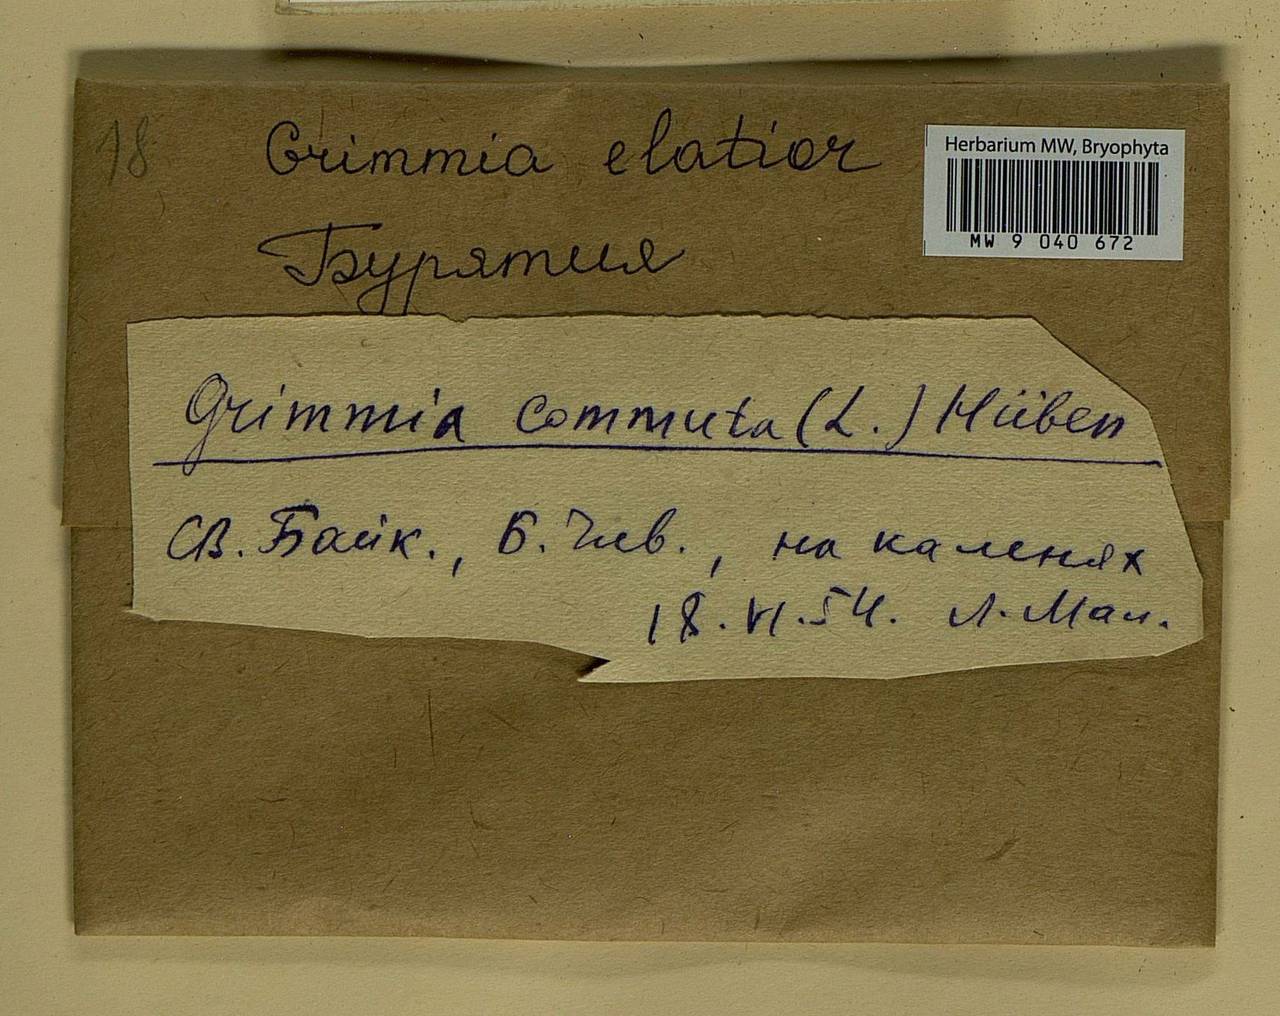 18
Grimmia elatior
Herbarium MW, Bryophyta
MW 9 040 672
Бурятия
Grimmia commuta (L.) Hüben
Св. Байк., Б. Чив., на каменях
18.VI.54. Л. Мал.